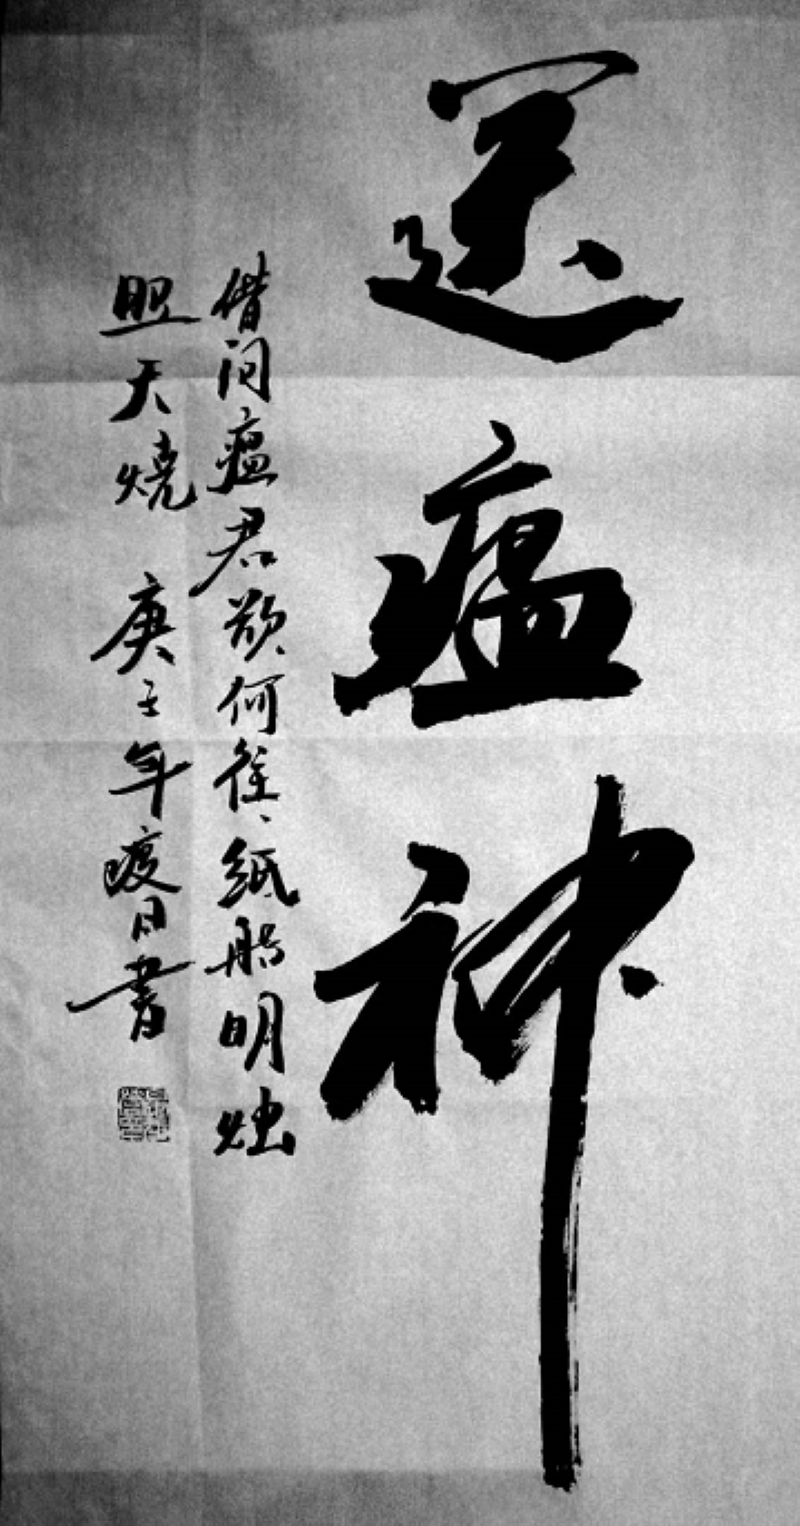 送瘟神
借问瘟君欲何往、纸船明烛
照天烧 庚子年 書